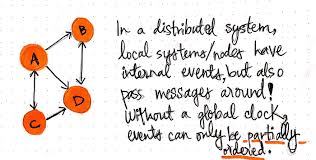 B
A
C
D
In a distributed system,
local systems/nodes have
internal events, but also
pass messages around!
Without a global clock,
events can only be partially
ordered.